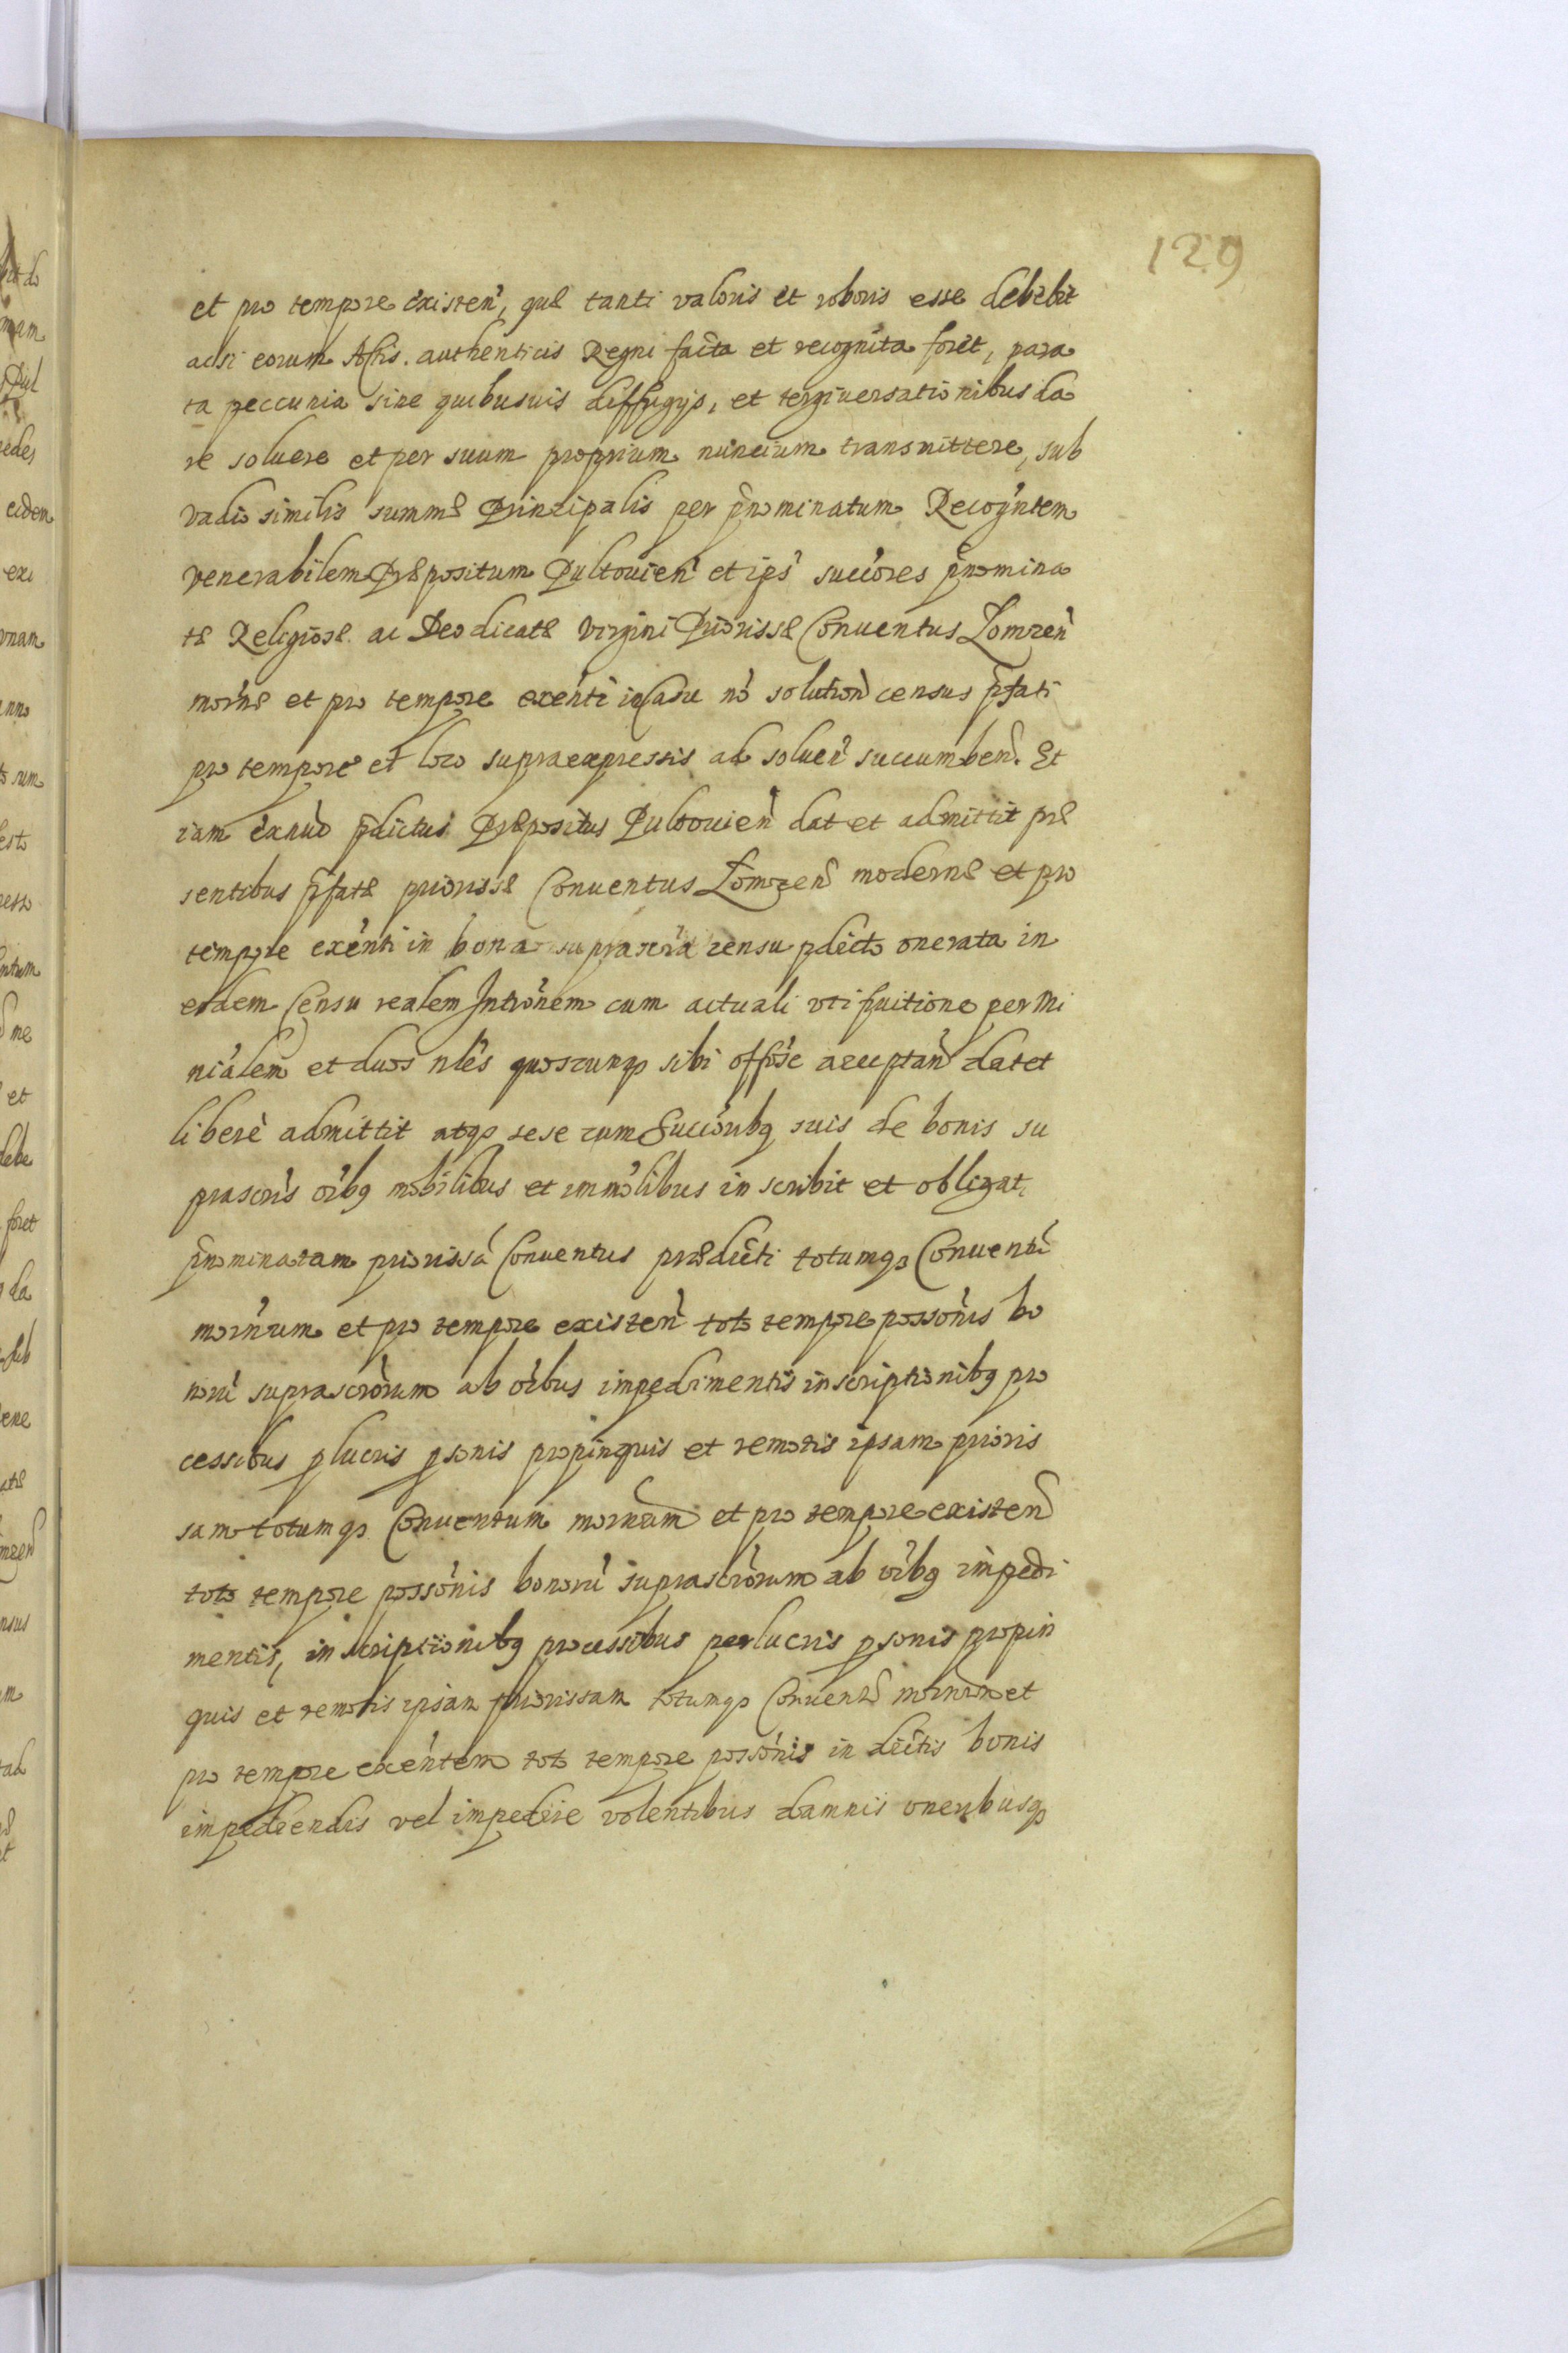 129
et pro tempore existen̄, quę tanti valoris et roboris esse debebit
acsi eorum Actis. authenticis Regni facta et recognita foret, para
ta peccunia sine quibusuis diffugijs, et tergiuersationibus da
re soluere et per suum proprium nuncium transmittere, sub
vadio similis summę Principalis per p̄nominatum Recog̃ntem
venerabilem Prępositum Pultouien̄ et ips̃ succ̃ores p̄nomina
tę Religiosę ac Deo dicatę Virgini Priorissę Conuentus Lomzen̄
mor̃nę et pro tempore exẽnti in Casu nõ solution̄ census p̄fati
pro tempore et loco supraexpressis ab soluen̄ succumben̄. Et
iam exnũc p̄dictus Prępositus Pultouien̄ dat et admittit prę
sentibus p̄fatę priorissę Conuentus Lomzen̄ modernę et pro
tempore exẽnti in bona suprascr̃a censu pdicto onerata in
eodem Censu realem Intro̅nem cum actuali vti fruitione per Mi
niãlem et duos nlẽs quoscunq3 sibi offiõse acceptan̄ dat et
liberè admittit atq3 sese cum Succ̃oribq suis de bonis su
prascris õibq mobilibus et immõlibus in scribit et obligat,
p̄nominatam priorissã Conuentus prędicti totumq3 Conuentũ
mor̃num et pro tempore existen̄ toto tempore possõnis bo
norũ suprascr̃orum ab õibus impedimentis inscriptionibq pro
cessibus plucris psonis propinquis et remotis ipsam prioris
sam totumq3 Conuentum mor̃num et pro tempore existen̄
toto tempore possõnis bonorũ suprascr̃orum ab õibq impedi
mentis, in scriptionibq processibus perlucris psonis propin
quis et remotis ipsam priorissam totumq3 Conuent̄ mor̃num et
pro tempore exẽntem toto tempore possõnis in dictis bonis
impediendis vel impedire volentibus damnis oneribusq3